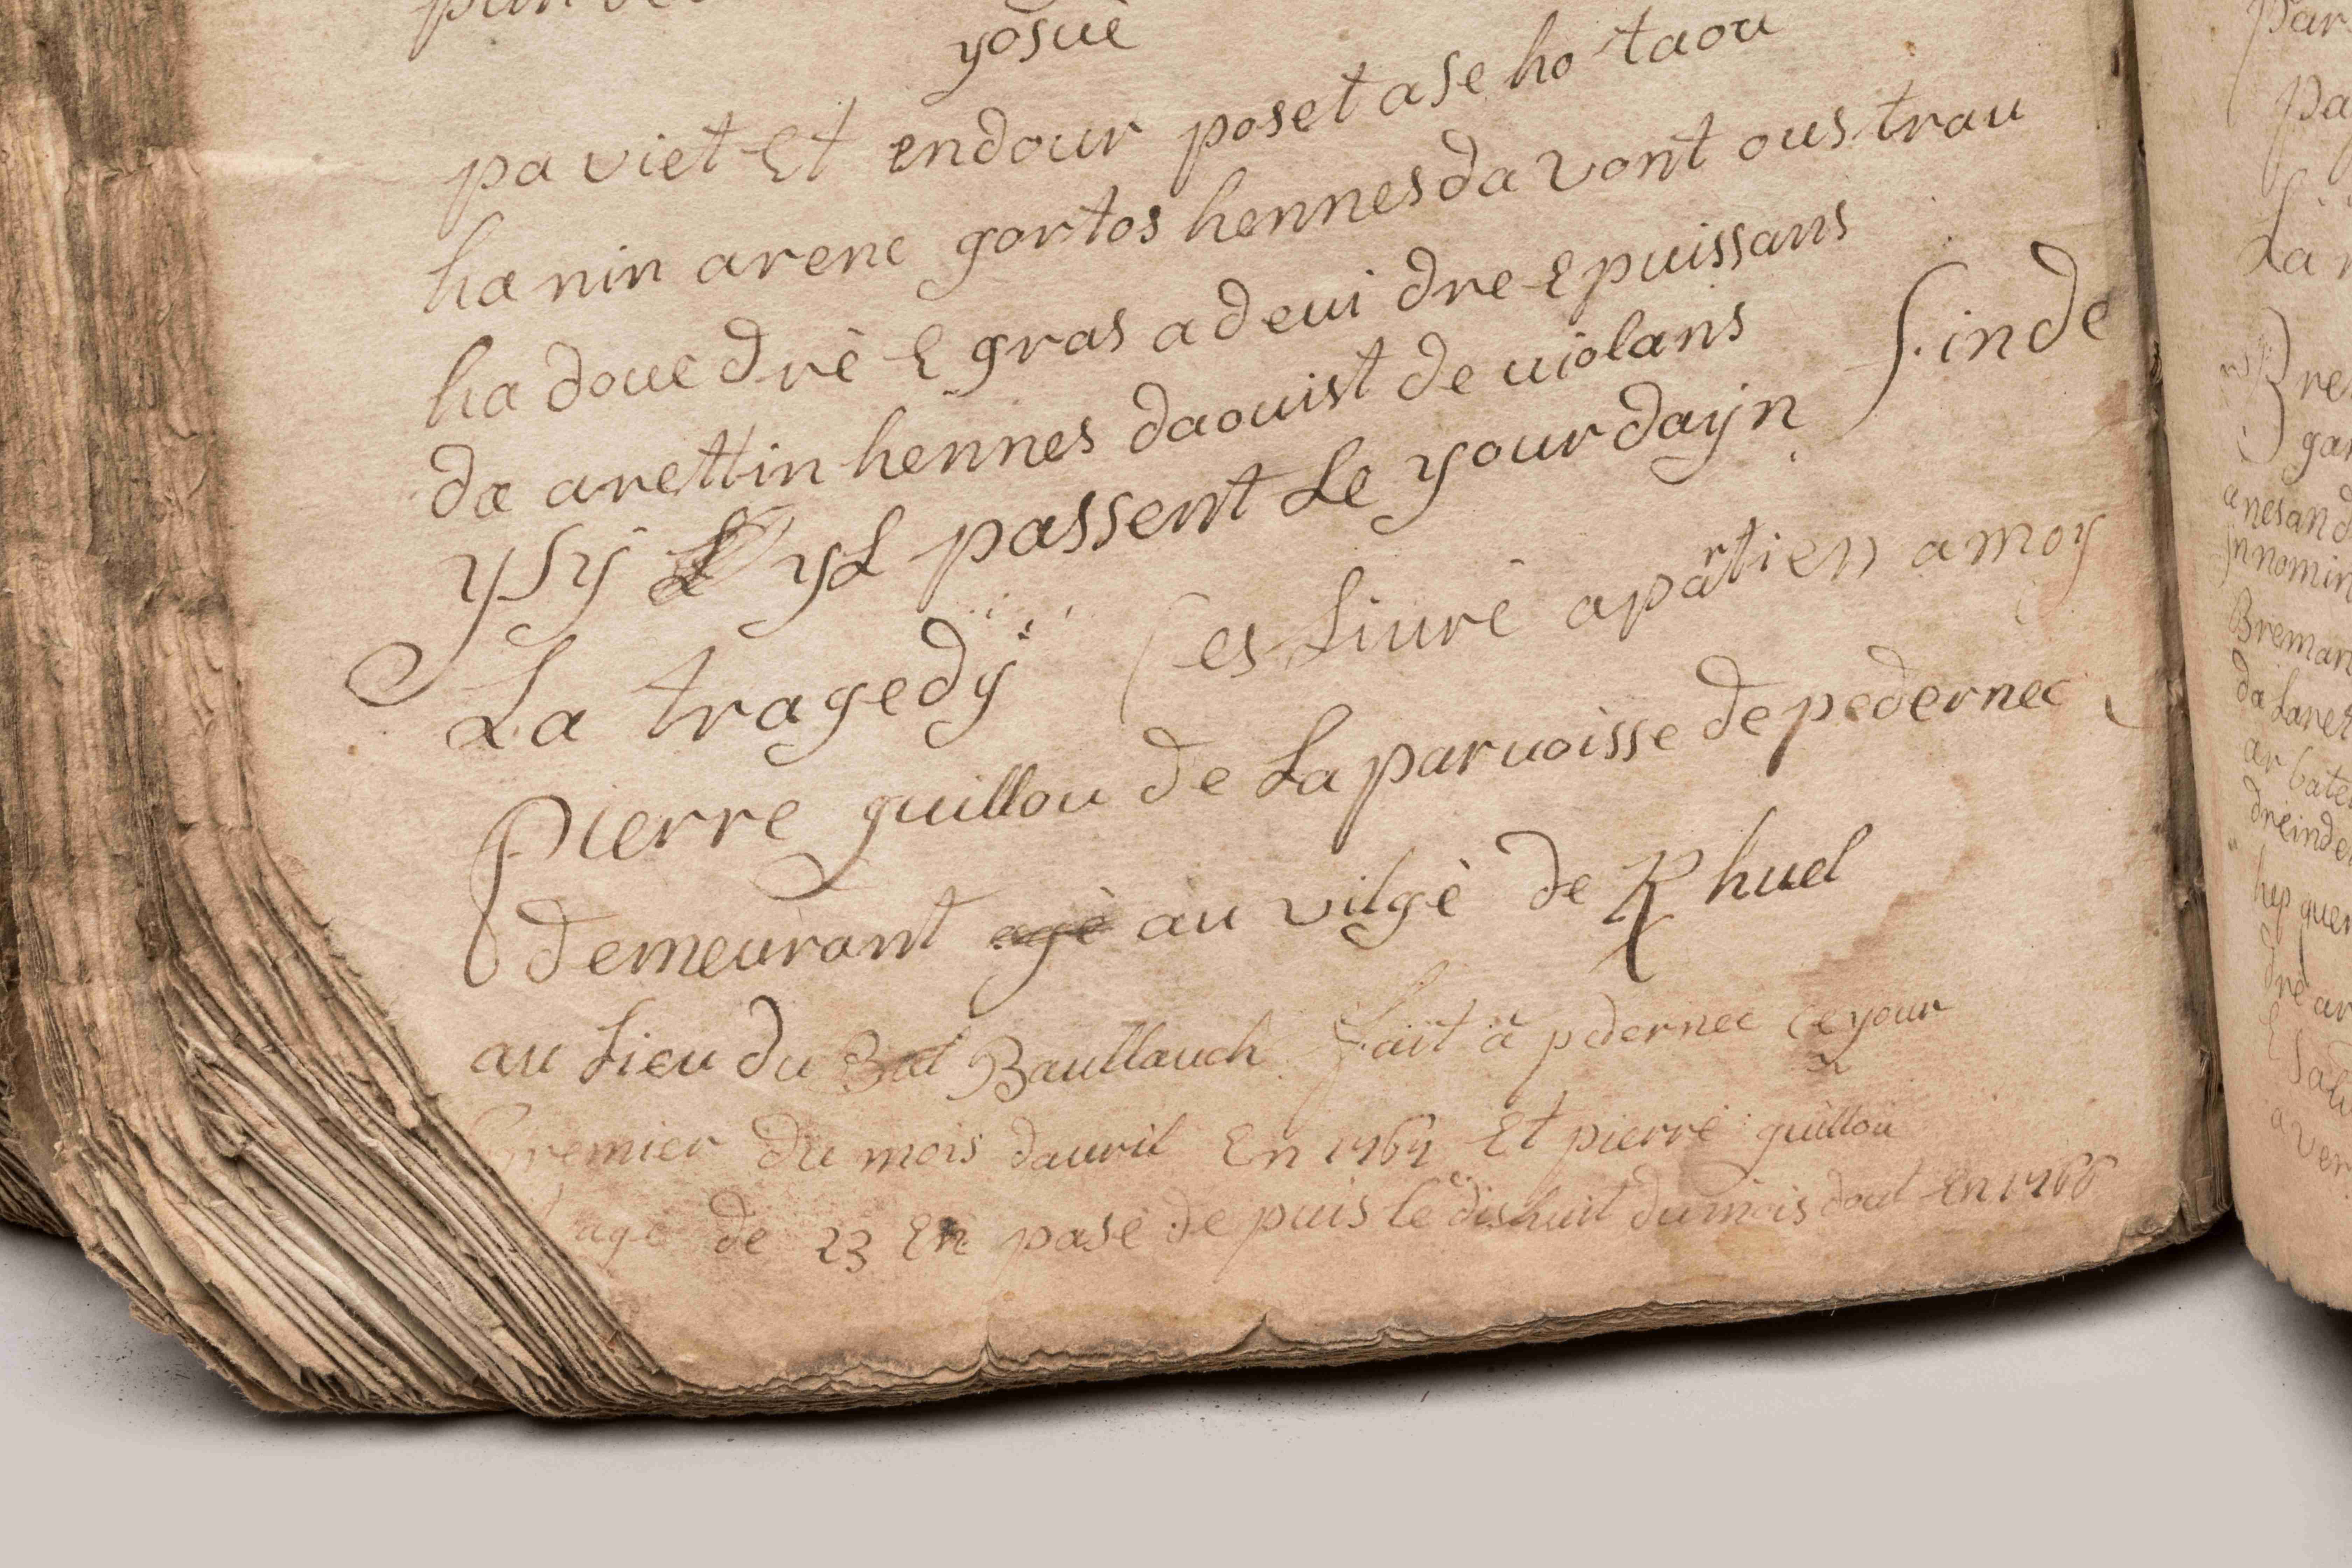 yosuè
pa viet Et endour poset ase ho taou
ha nin arene gortos hennes da vont ous trau
ha doue drè E gras a deui dre E puissans
da arettin hennes daouist de violans
ysÿ yl passent Le yourdaÿn finde
La tragedÿ Ces Liurè apartien a moy
Pierre guillou de La paruoisse de pedernec
demeurant agè au vilgè de K huel
au Lieu du Baullauch fait à pdernec ce your
Premier du mois dauril En 1767 Et pierrè guillou
agè de 23 En pasè de puis le dishuit du mois dout En 1766
par
pa
La
Bre
gar
anesan
jnnomin
Breman
da Laret
ar bate
dreinde
hep quer
dre ar
E sal
a ver